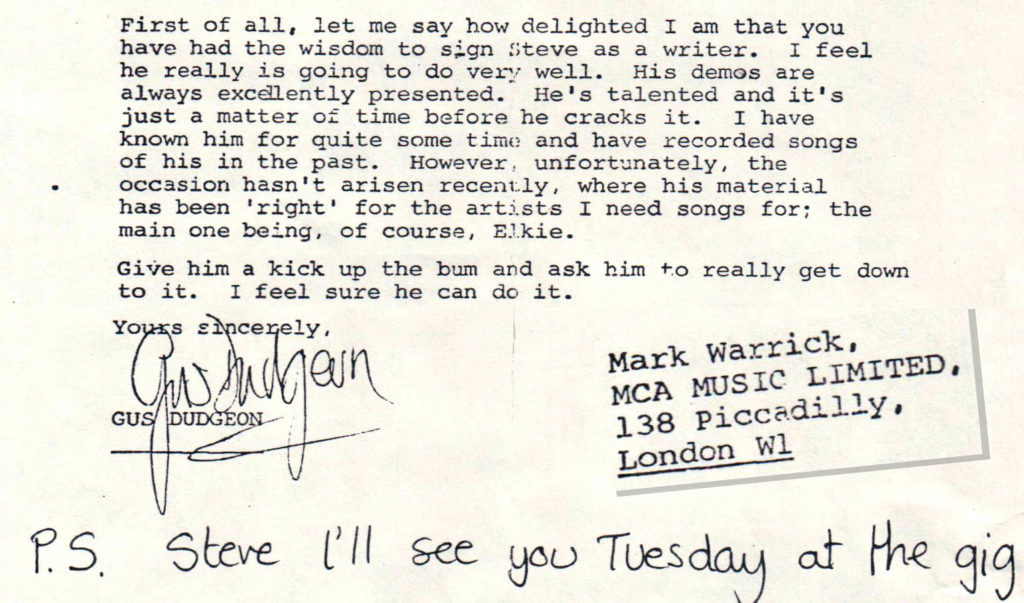 First of all, let me say how delighted I am that you
have had the wisdom to sign Steve as a writer. I feel
he really is going to do very well. His demos are
always excellently presented. He's talented and it's
just a matter of time before he cracks it. I have
known him for quite some time and have recorded songs
of his in the past. However, unfortunately, the
occasion hasn't arisen recently, where his material
has been 'right' for the artists I need songs for; the
main one being, of course, Elkie.
Give him a kick up the bum and ask him to really get down
to it. I feel sure he can do it.
Yours sincerely,
Gus Dudgeon
GUS DUDGEON
Mark Warrick,
MCA MUSIC LIMITED,
138 Piccadilly,
London W1
P.S. Steve I'll see you Tuesday at the gig